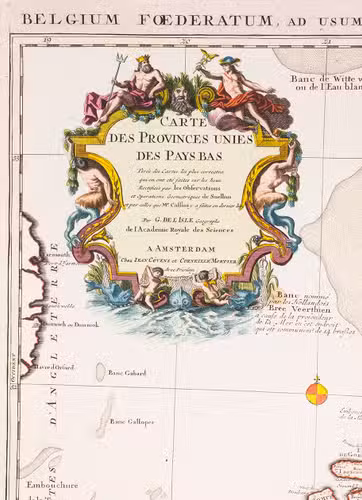 BELGIUM FŒDERATUM, AD USUM
19
20
21
Banc de Witte
ou de l'Eau blan
CARTE
DES PROVINCES UNIES
DES PAYS BAS
Tirée des Cartes les plus correctes
qui en ont été faites sur les lieux
Rectifiées par les Observations
et Operations Geometriques de Snellius
et par celles que Mr. Cassiny a faites en dernier lieu
Par G. DEL'ISLE Geographe
de l'Academie Royale des Sciences
A AMSTERDAM
Chez IEAN CÓVENS et CORNEILLE MORTIER
Avec Privilege
53
Banc nommé
par les Hollandois
Bree Veerthien
a cause de la profondeur
de la Mer en cet endroit
qui est communement de 14 brasses
D'ANGLETERRE
Banc Gabard
Banc Galloper
Embouchure